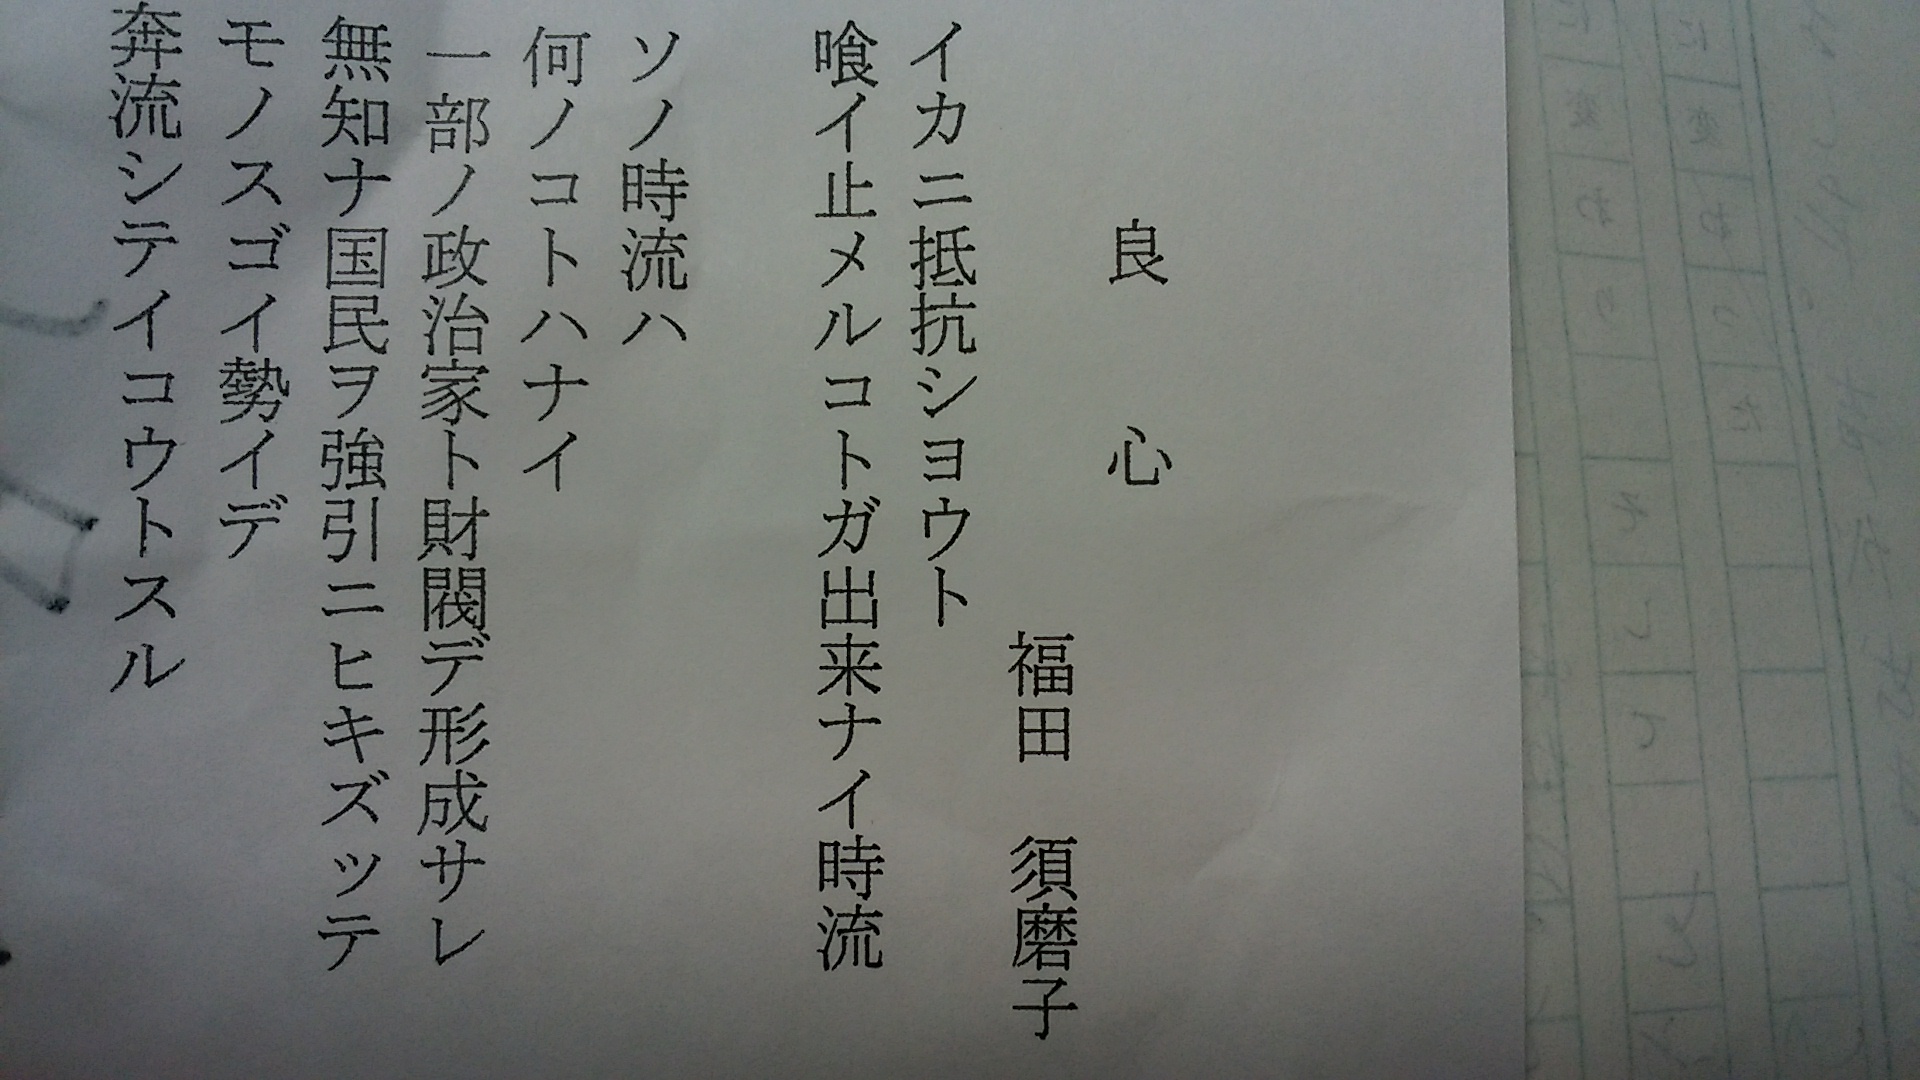 良心
福田 須磨子
イカニ抵抗シヨウト
喰イ止メルコトガ出来ナイ時流
ソノ時流ハ
何ノコトハナイ
一部ノ政治家ト財閥デ形成サレ
無知ナ国民ヲ強引ニヒキズッテ
モノスゴイ勢イデ
奔流シテイコウトスル